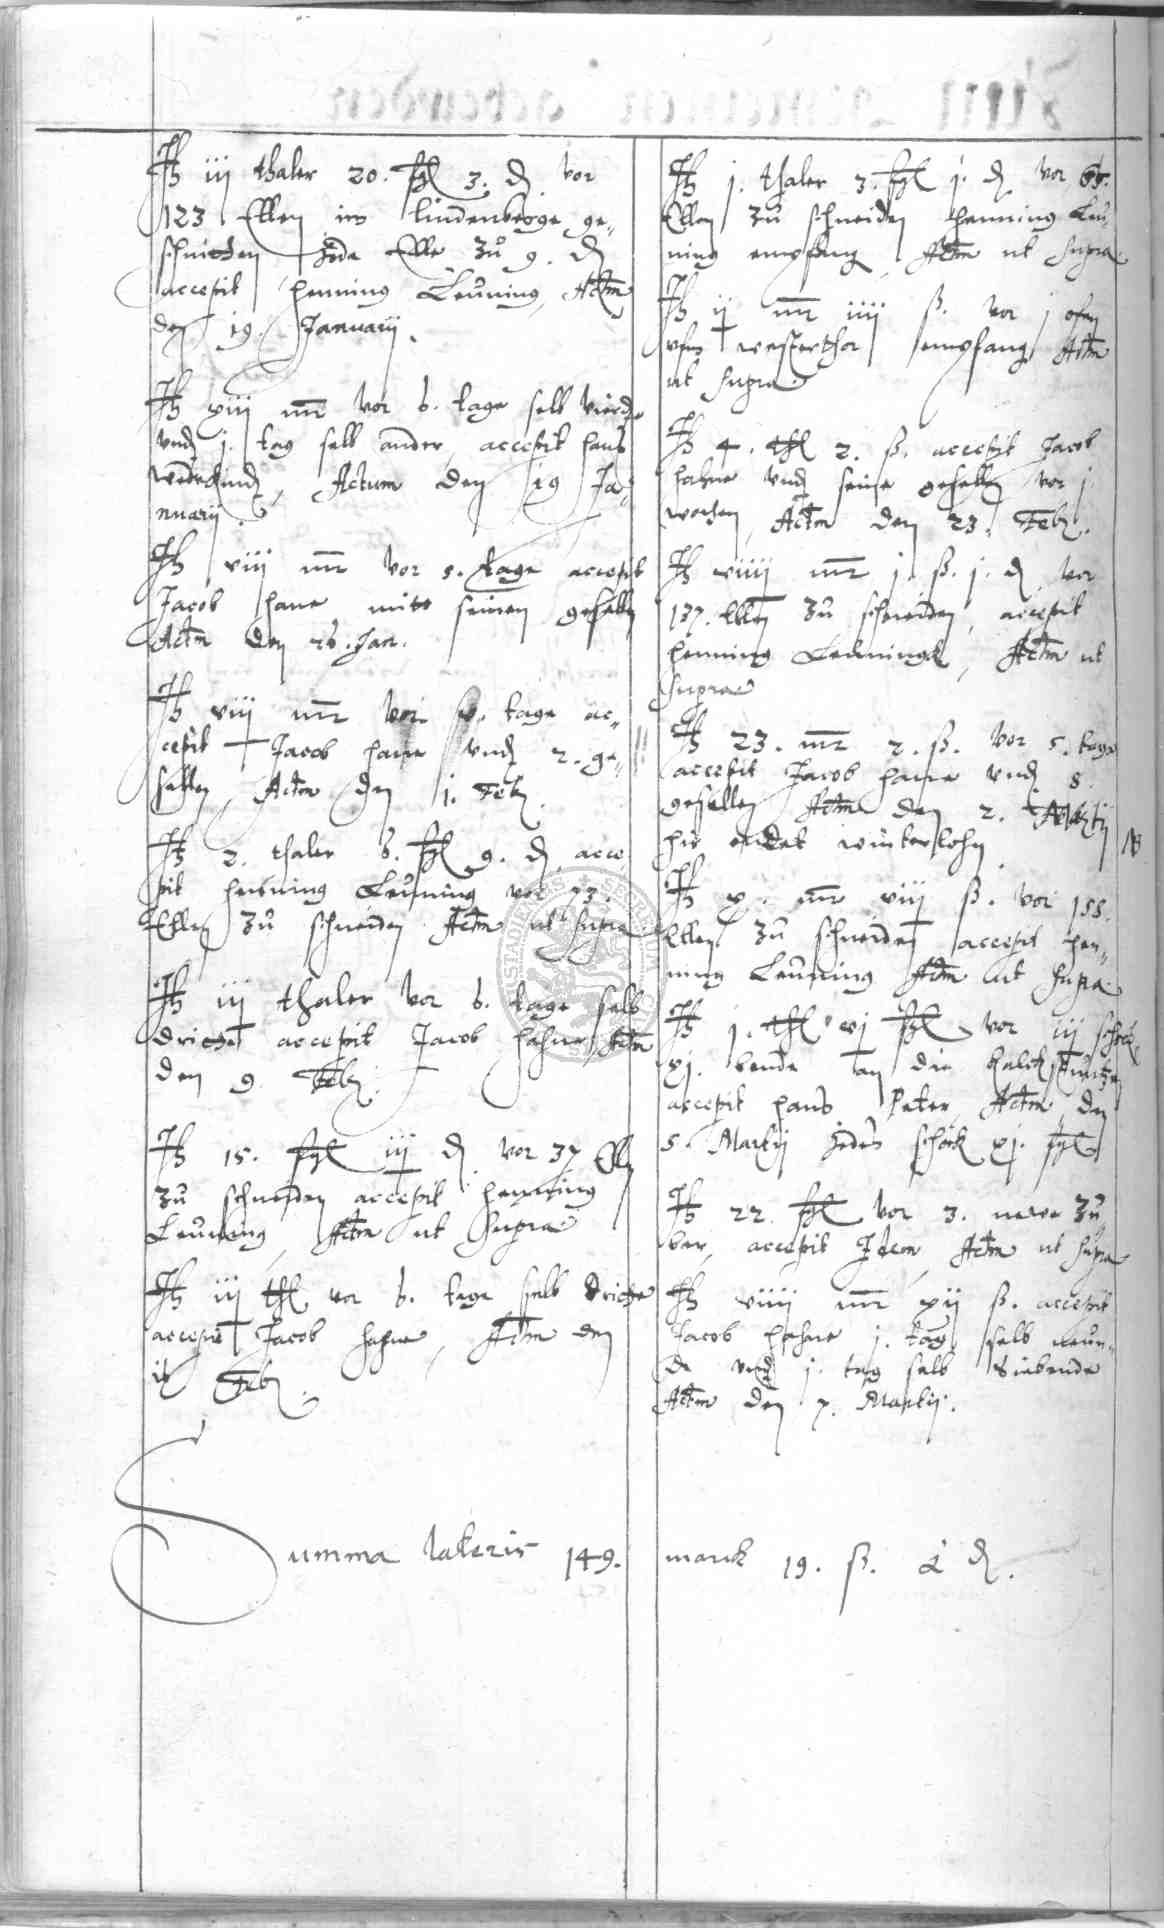 Jtz iij thaler 20. sgl 3. d. vor
123 Ellen im lindenberge ge-
schnitten Jede Elle zu 9. d
accepit Henning Leuning, Actm
den 19. Januarij.
Jtz xiij mr vor 6. tage selb vierde
vnd j. tag selb ander, accepit Hans
Actum den 19 Ja-
nuarij.
Jtz viij mr vor 5. tage accepit
Jacob Hane mitt seinen gesellen
Actm den 26. Jan.
Jtz viij mr vor v. tage ac-
cepit Jacob Hane vnd 2. ge-
sellen, Actm den 1. Feb.
Jtz 2. thaler 6. sgl 9. d. acce-
pit Henning Leuning vor 73.
Ellen zu schneiden Actm ut supra
Jtz iij thaler vor 6. tage selb
dritte accepit Jacob Hahne Actm
den 9. Feb.
Jtz 15. sgl iij d. vor 37 Ellen
zu schneiden accepit Henning
Leuning, Actm ut supra
Jtz iij thl vor 6. tage selb dritte
accepit Jacob Hahne, Actm den
Feb.
Jtz j. thaler 3. sgl j. d vor
Ellen zu schneiden Henning Leu-
ning empfang, Actm ut supra.
Jtz ij mr iiij ß. vor j ofen
vfm westerthor empfang Actm
ut supra.
Jtz 4. thl 2. ß. accepit Jacob
Hahne vnd seine gesellen vor j.
wochen, Actm den 23. Feb.
Jtz viiij mr j. ß. j. d vor
137. Ellen zu schneiden, accepit
Henning Leuningk, Actm ut
supra
Jtz 23. mr 2. ß. vor 5. tage
accepit Jacob Hane vnd 8.
gesellen Actm den 2. Martij
hir endet winterlohn. NB
Jtz x. mr viij ß. vor 155.
Ellen zu schneiden accepit Hen-
ning Leuning Actm ut supra
Jtz j. thl xj sgl vor iij schock
xj. bende an die
accepit Hans Peter, Actm den
5. Martij Jedes schock xj. sgl
Jtz 22. sgl vor 3. newe zu-
ber, accepit Idem, Actm ut supra
Jtz viiij mr xij ß. accepit
Jacob Hahne j. tag selb neun-
de vnd j. tag selb Siebende
Actm den 7. Martij.
Summa lateris 149. marck 19. ß. d.